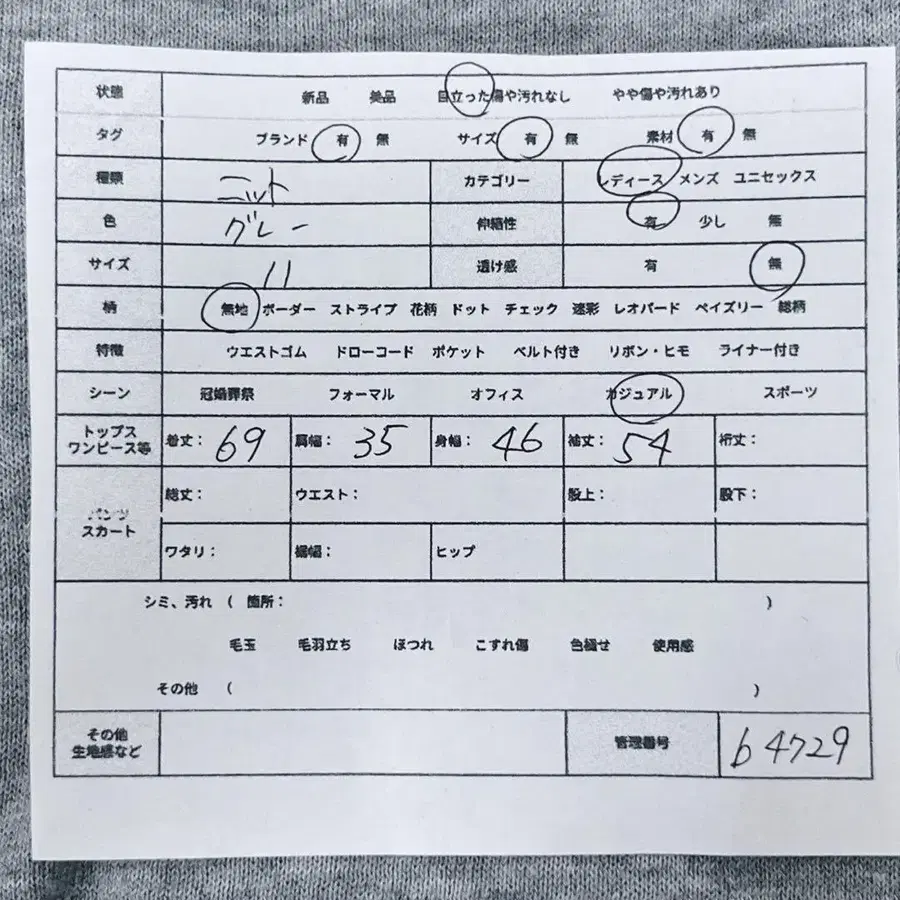 状態 新品 美品 目立った傷や汚れなし やや傷や汚れあり
タグ ブランド 有 無 サイズ 有 無 素材 有 無
種類 ニット カテゴリー レディース メンズ ユニセックス
色 グレー 伸縮性 有 少し 無
サイズ 11 透け感 有 無
柄 無地 ボーダー ストライプ 花柄 ドット チェック 迷彩 レオパード ペイズリー 総柄
特徴 ウエストゴム ドローコード ポケット ベルト付き リボン・ヒモ ライナー付き
シーン 冠婚葬祭 フォーマル オフィス カジュアル スポーツ
トップス
ワンピース等 着丈: 69 肩幅: 35 身幅: 46 袖丈: 54 裄丈:
パンツ
スカート 総丈: ウエスト: 股上: 股下:
ワタリ: 裾幅: ヒップ
シミ、汚れ ( 箇所: )
毛玉 毛羽立ち ほつれ こすれ傷 色褪せ 使用感
その他 ( )
その他
生地感など 管理番号 b4729